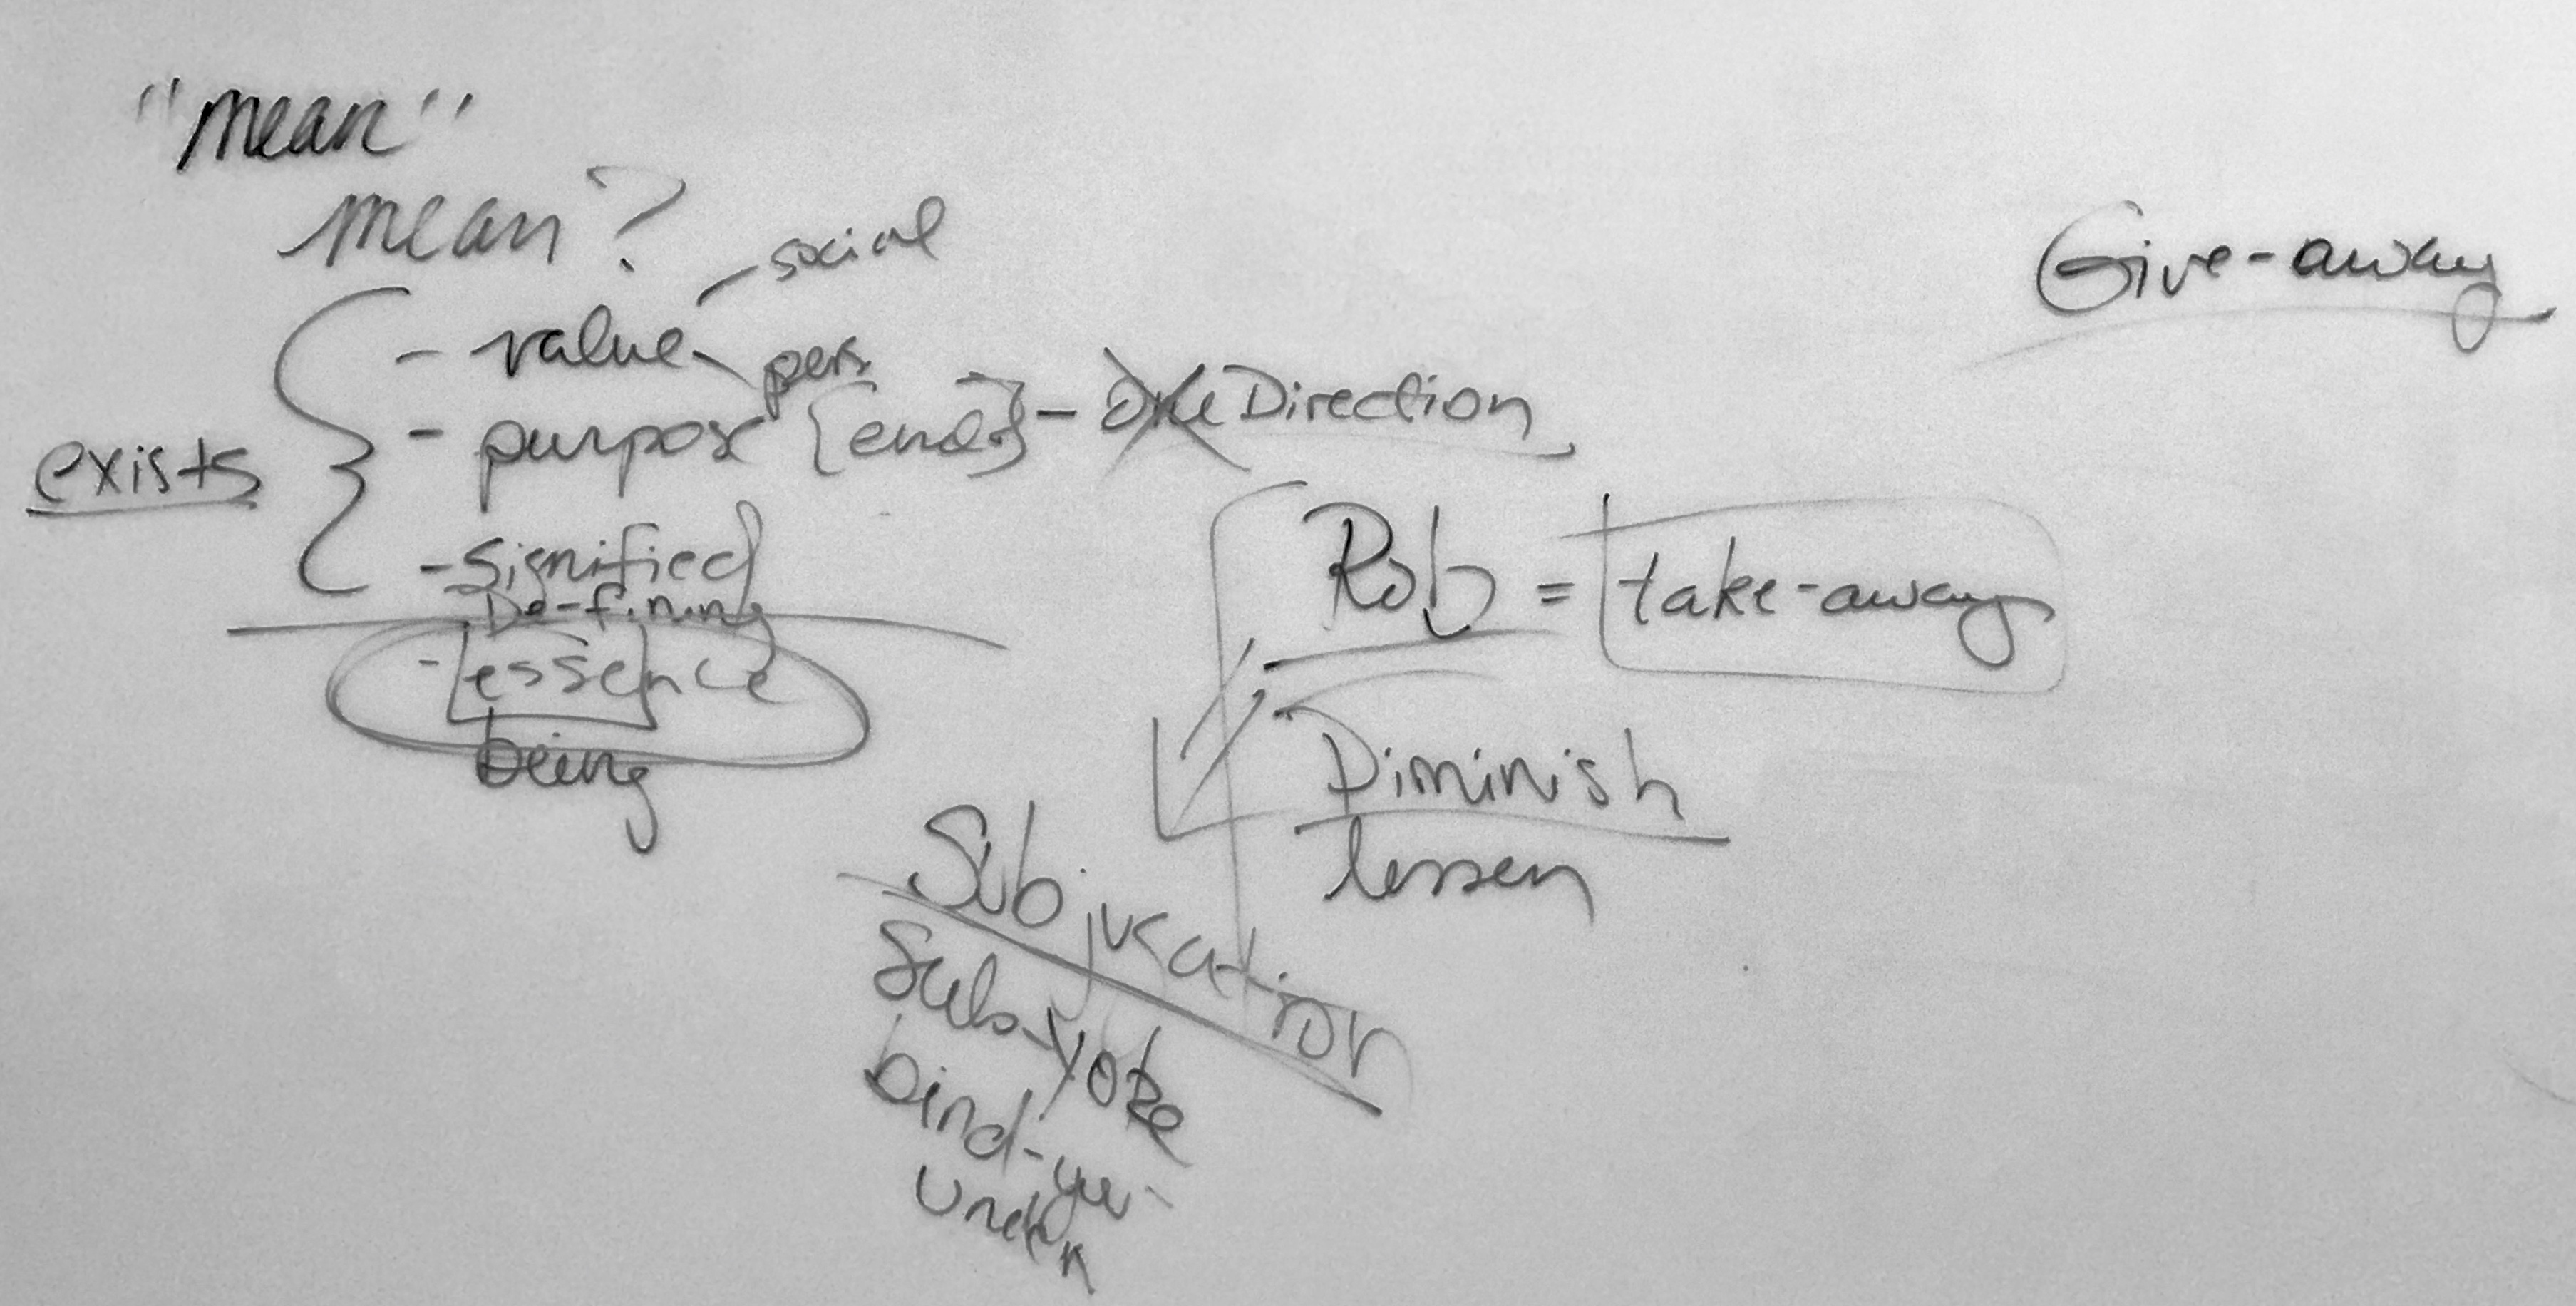 "mean"
mean?
social
- value
pers
Give-away
exists
- purpose {end} - One Direction
- signified
De-fining
Rob = take-away
- essence
being
Diminish
lessen
Subjucation
Sub-yoke
bind-